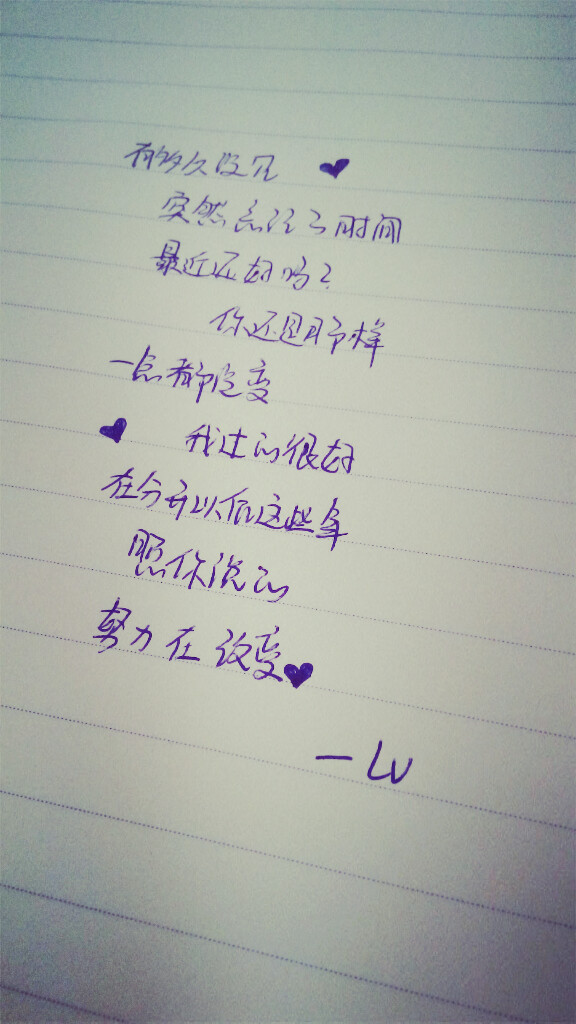 有多久没见
突然忘记了时间
最近还好吗？
你还是那样
一点都没变
我过的很好
在分开以后这些年
照你说的
努力在改变
— LV